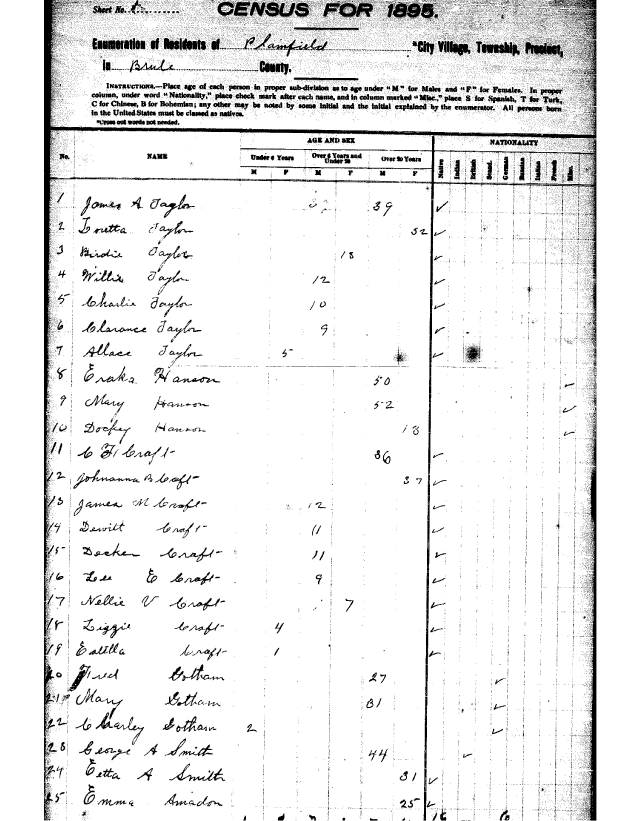 Sheet No.
CENSUS FOR 1895.
Enumeration of Residents of Plainfield *City Village, Township, Precinct,
in Brule County.
INSTRUCTIONS.—Place age of each person in proper sub-division as to age under "M" for Males and "F" for Females. In proper
column, under word "Nationality," place check mark after each name, and in column marked "Misc.," place S for Spanish, T for Turk,
C for Chinese, B for Bohemian; any other may be noted by some initial and the initial explained by the enumerator. All persons born
in the United States must be classed as natives.
*Cross out words not needed.
No. NAME AGE AND SEX NATIONALITY
Under 6 Years Over 6 Years and Under 20 Over 20 Years
M F M F M F Native Indian British Scand. German Russian Italian French Mis.
1 James A Taylor 39 ✓
2 Loretta Taylor 32 ✓
3 Birdie Taylor 13 ✓
4 Willie Taylor 12 ✓
5 Charlie Taylor 10 ✓
6 Clarance Taylor 9 ✓
7 Allace Taylor 5 ✓
8 Hanson 50 ✓
9 Mary Hanson 52 ✓
10 Dockey Hanson 13 ✓
11 C F Craft 36 ✓
12 Johnanna B Craft 37 ✓
13 James M Craft 12 ✓
14 Dewitt Craft 11 ✓
15 Craft 11 ✓
16 Lee E Craft 9 ✓
17 Nellie V Craft 7 ✓
18 Lizzie Craft 4 ✓
19 Estella Craft 1 ✓
20 Fred Gotham 27 ✓
21 Mary Gotham 31 ✓
22 Charley Gotham 2 ✓
23 George A Smith 44 ✓
24 Etta A Smith 31 ✓
25 Emma Amadon 25 ✓